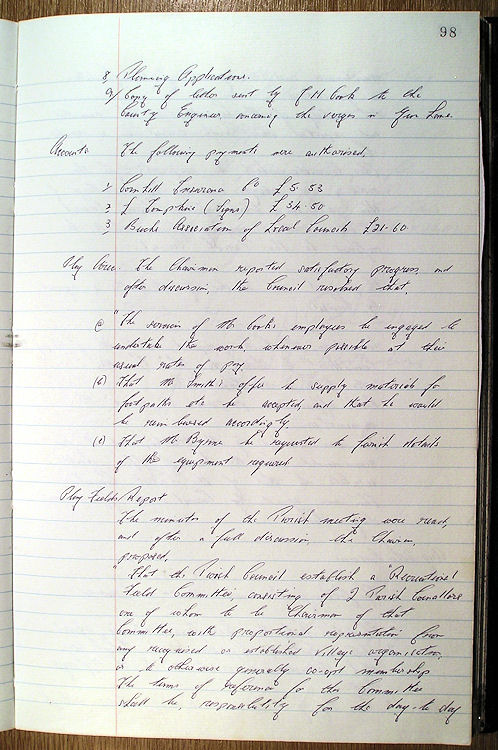 98
8, Planning Applications.
9/ Copy of letter sent by P H Cook to the
County Engineer, concerning the verges in Lane.
Accounts. The following payments were authorised,
1, Cornhill Insurance Co £5.53
2, L Tompkins (Signs) £34.50
3, Bucks Association of Local Councils £21.60
Play Area. The Chairman reported satisfactory progress, and
after discussion, the Council resolved that,
(a) "The services of Mr Cooks employees be engaged to
undertake the work, whenever possible at their
usual rates of pay.
(b) That Mr Smith's offer to supply materials for
footpaths etc be accepted, and that he would
be reimbursed accordingly
(c) That Mr Byrne be requested to furnish details
of the equipment required
Play Fields Report
The minutes of the Parish meeting were read,
and after a full discussion, the Chairman,
proposed,
"That the Parish Council establish a "Recreational
Field Committee, consisting of 2 Parish Councillors
one of whom to be Chairman of that
Committee, with proportional representation from
any recognised or established village organisation,
or to otherwise generally co-opt membership
The terms of reference for this Committee
shall be, responsibility for the day-to day